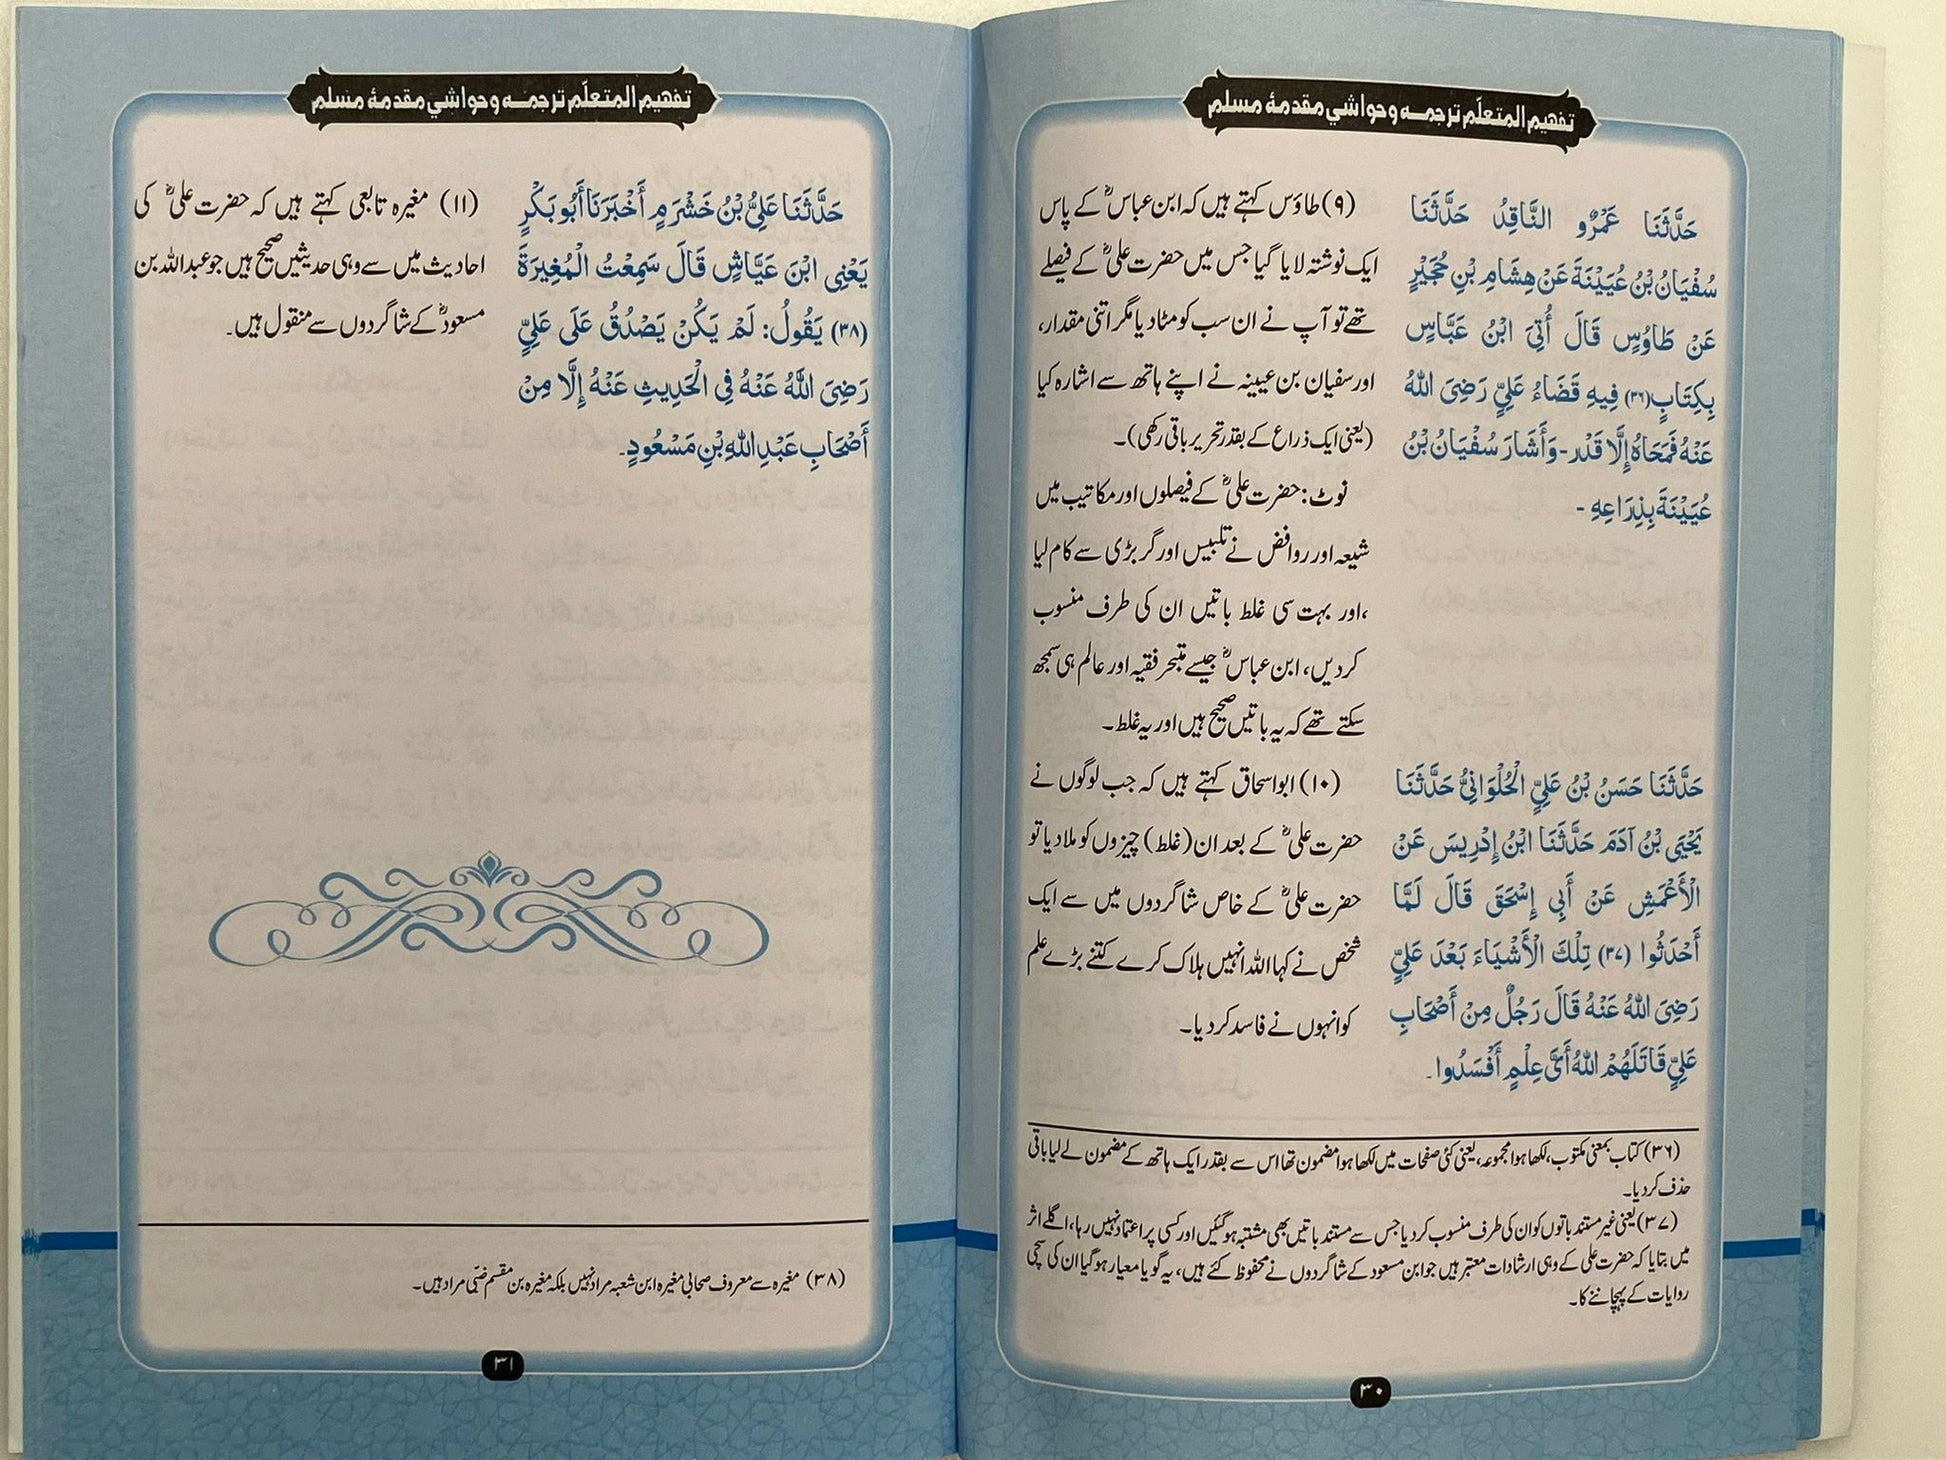 تفهيم المتعلّم ترجمہ و حواشي مقدمۂ مسلم
حَدَّثَنَا عَمْرٌو النَّاقِدُ حَدَّثَنَا
سُفْيَانُ بْنُ عُيَيْنَةَ عَنْ هِشَامِ بْنِ حُجَيْرٍ
عَنْ طَاوُسٍ قَالَ أُتِيَ ابْنُ عَبَّاسٍ
بِكِتَابٍ(٣٦) فِيهِ قَضَاءُ عَلِيٍّ رَضِيَ اللهُ
عَنْهُ فَمَحَاهُ إِلَّا قَدْر-وَأَشَارَ سُفْيَانُ بْنُ
عُيَيْنَةَ بِذِرَاعِهِ -
(۹) طاؤس کہتے ہیں کہ ابن عباسؓ کے پاس
ایک نوشتہ لایا گیا جس میں حضرت علیؓ کے فیصلے
تھے تو آپ نے ان سب کو مٹادیا مگر اتنی مقدار،
اور سفیان بن عیینہ نے اپنے ہاتھ سے اشارہ کیا
(یعنی ایک ذراع کے بقدر تحریر باقی رکھی)۔
نوٹ: حضرت علیؓ کے فیصلوں اور مکاتیب میں
شیعہ اور روافض نے تلبیس اور گربڑی سے کام لیا
،اور بہت سی غلط باتیں ان کی طرف منسوب
کردیں، ابن عباسؓ جیسے متبحر فقیہ اور عالم ہی سمجھ
سکتے تھے کہ یہ باتیں صحیح ہیں اور یہ غلط۔
حَدَّثَنَا حَسَنُ بْنُ عَلِيٍّ الْحُلْوَانِيُّ حَدَّثَنَا
يَحْيَى بْنُ آدَمَ حَدَّثَنَا ابْنُ إِدْرِيسَ عَنْ
الْأَعْمَشِ عَنْ أَبِي إِسْحَقَ قَالَ لَمَّا
أَحْدَثُوا (٣٧) تِلْكَ الْأَشْيَاءَ بَعْدَ عَلِيٍّ
رَضِيَ اللهُ عَنْهُ قَالَ رَجُلٌ مِنْ أَصْحَابِ
عَلِيٍّ قَاتَلَهُمْ اللهُ أَيَّ عِلْمٍ أَفْسَدُوا۔
(۱۰) ابواسحاق کہتے ہیں کہ جب لوگوں نے
حضرت علیؓ کے بعد ان (غلط) چیزوں کو ملادیا تو
حضرت علیؓ کے خاص شاگردوں میں سے ایک
شخص نے کہا اللہ انہیں ہلاک کرے کتنے بڑے علم
کو انہوں نے فاسد کر دیا۔
(۳۶) کتاب بمعنی مکتوب، لکھا ہوا مجموعہ، یعنی کئی صفحات میں لکھا ہوا مضمون تھا اس سے بقدر ایک ہاتھ کے مضمون لے لیا باقی
حذف کردیا۔
(۳۷) یعنی غیر مستند باتوں کو ان کی طرف منسوب کر دیا جس سے مستند باتیں بھی مشتبہ ہوگئیں اور کسی پر اعتماد نہیں رہا، اگلے اثر
میں بتایا کہ حضرت علی کے وہی ارشادات معتبر ہیں جو ابن مسعود کے شاگردوں نے محفوظ کئے ہیں، یہ گویا معیار ہوگیا ان کی سچی
روایات کے پہچاننے کا۔
۳۰
تفهيم المتعلّم ترجمہ و حواشي مقدمۂ مسلم
حَدَّثَنَا عَلِيُّ بْنُ خَشْرَمٍ أَخْبَرَنَا أَبُو بَكْرٍ
يَعْنِي ابْنَ عَيَّاشٍ قَالَ سَمِعْتُ الْمُغِيرَةَ
(٣٨) يَقُولُ: لَمْ يَكُنْ يَصْدُقُ عَلَى عَلِيٍّ
رَضِيَ اللَّهُ عَنْهُ فِي الْحَدِيثِ عَنْهُ إِلَّا مِنْ
أَصْحَابِ عَبْدِ اللهِ بْنِ مَسْعُودٍ۔
(۱۱) مغیرہ تابعی کہتے ہیں کہ حضرت علیؓ کی
احادیث میں سے وہی حدیثیں صحیح ہیں جو عبداللہ بن
مسعودؓ کے شاگردوں سے منقول ہیں۔
(۳۸) مغیرہ سے معروف صحابی مغیرہ ابن شعبہ مراد نہیں بلکہ مغیرہ بن مقسم ضبّی مراد ہیں۔
۳۱